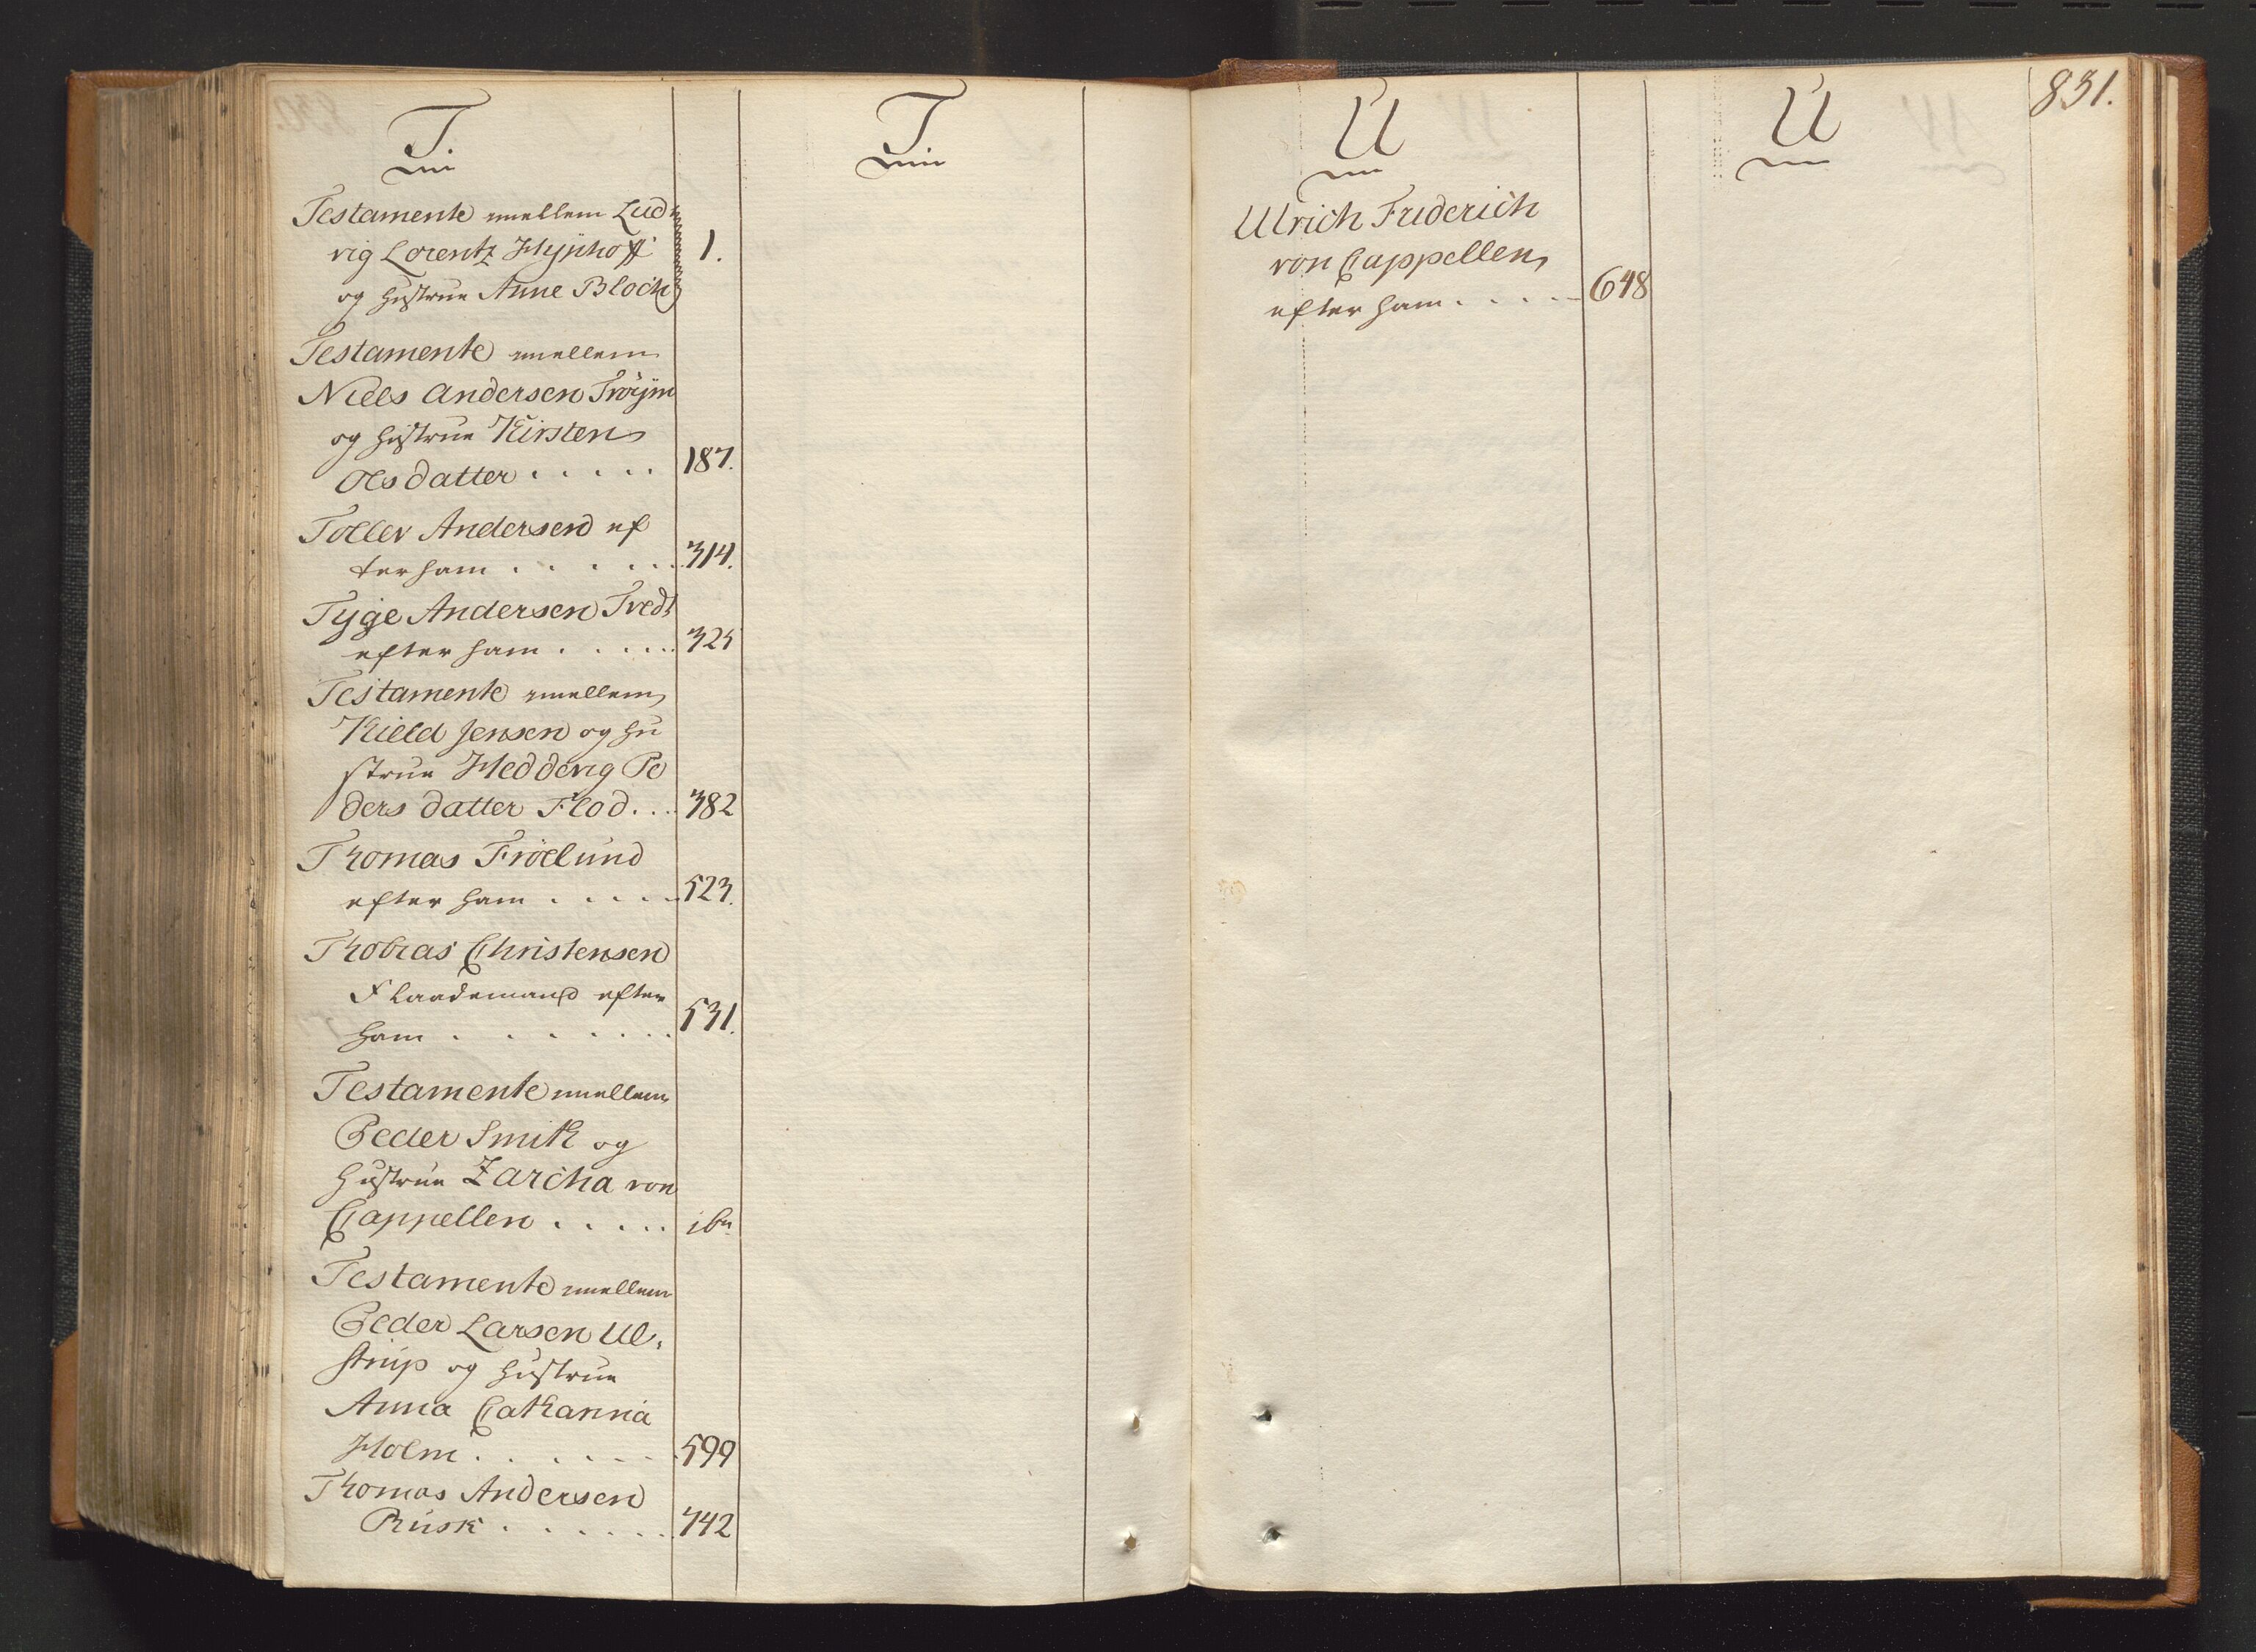 T.
Testamente mellem Lud
vig Lorentz Hÿphoff
og Hustrue Anne Bloch
1.
Testamente mellem
Niels Andersen Tröÿm
og Hustrue Kirsten
Olsdatter . . . . .
187.
Tollev Andersen ef
ter ham . . . . . .
314.
Tyge Andersen Tvedt
efter ham . . . . .
325
Testamente mellem
Kield Jensen og Hu
strue Hedderig Pe
ders datter Flod. . .
382
Thomas Fröelund
efter ham . . . . .
523.
Thobias Christensen
Flaademand efter
ham . . . . . . .
531.
Testamente mellem
Peder Smith og
Hustrue Zarcha von
Cappellen . . . . .
ibn
Testamente mellem
Peder Larsen Ul-
strup og Hustrue
Anna Catharina
Holm . . . . . .
599
Thomas Andersen
Rusk . . . . . .
742
T
U
Ulrich Friderich
von Cappellen
efter ham . . . . .
648
U
831.